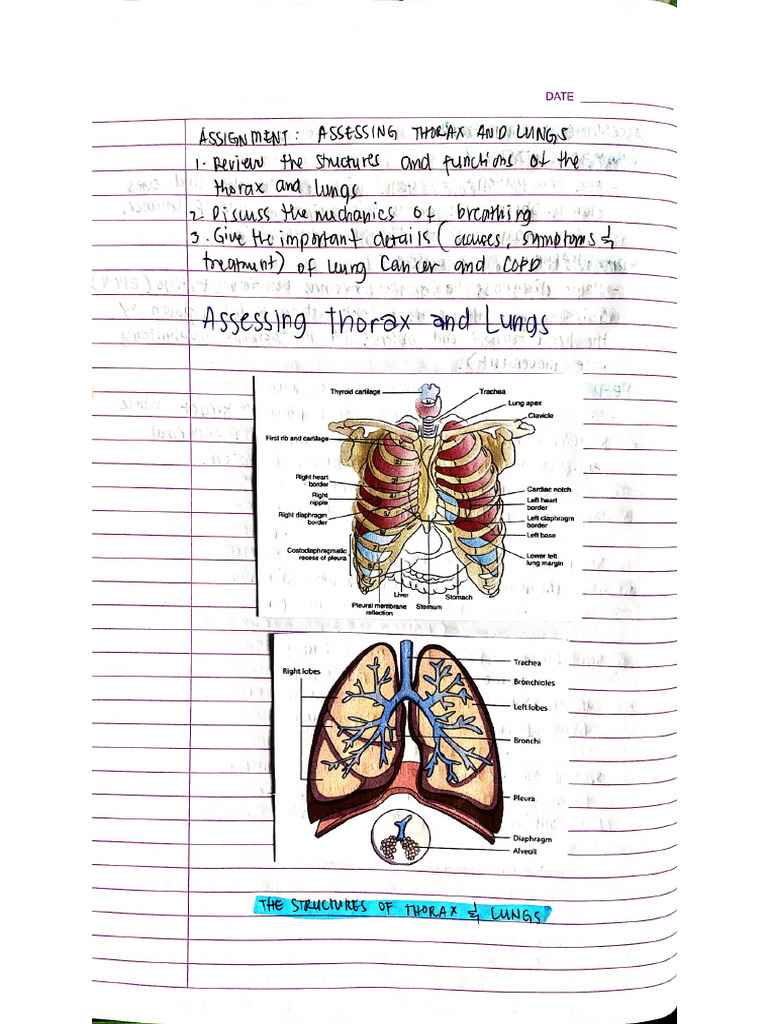 DATE
ASSIGNMENT: ASSESSING THORAX AND LUNGS
1. Review the structures and functions of the
thorax and lungs
2. Discuss the mechanics of breathing
3. Give the important details (causes, symptoms &
treatment) of lung Cancer and COPD
Assessing thorax and Lungs
Thyroid cartilage
Trachea
Lung apex
Clavicle
First rib and cartilage
Right heart
border
Right
nipple
Right diaphragm
border
Costodiaphragmatic
recess of pleura
Cardiac notch
Left heart
border
Left diaphragm
border
Left base
Lower left
lung margin
Liver
Stomach
Pleural membrane
reflection
Sternum
Right lobes
Trachea
Bronchioles
Left lobes
Bronchi
Pleura
Diaphragm
Alveoli
THE STRUCTURES OF THORAX & LUNGS